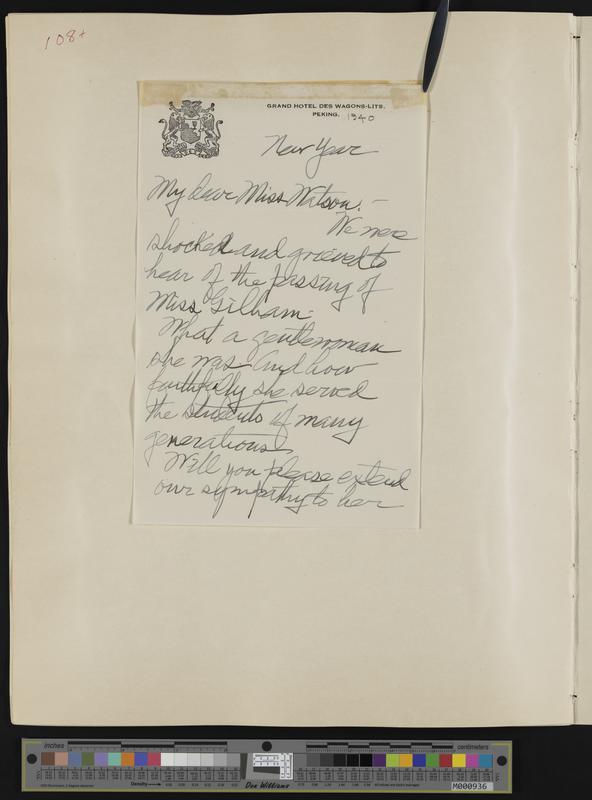 108+
GRAND HOTEL DES WAGONS-LITS.
PEKING. 1940
New Year
My dear Miss Watson. –
We were
shocked and grieved to
hear of the passing of
Miss Gilham.
What a gentlewoman
she was. And how
faithfully she served
the students of many
generations.
Will you please extend
our sympathy to her
inches
centimeters
Density
Don Williams
M000936